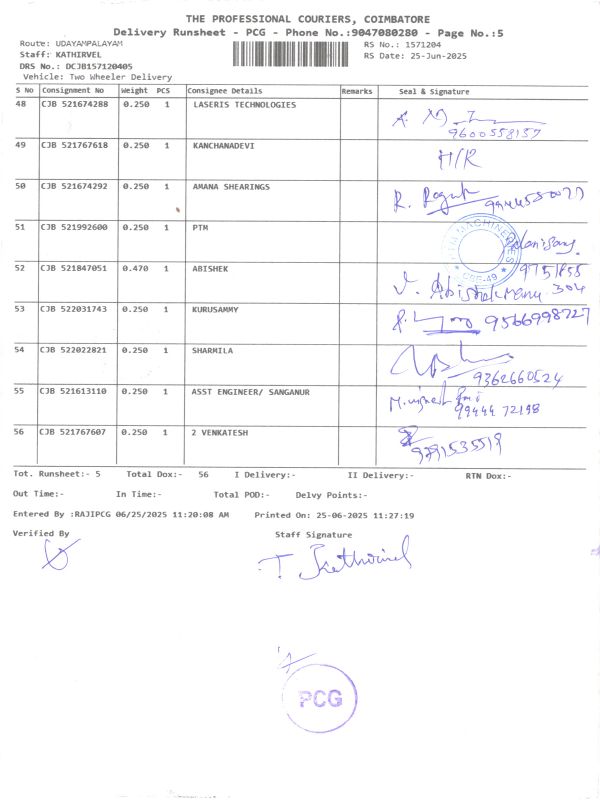 THE PROFESSIONAL COURIERS, COIMBATORE
Delivery Runsheet - PCG - Phone No.:9047080280 - Page No.:5
Route: UDAYAMPALAYAM RS No.: 1571204
Staff: KATHIRVEL RS Date: 25-Jun-2025
DRS No.: DCJB157120405
Vehicle: Two Wheeler Delivery
S No Consignment No Weight PCS Consignee Details Remarks Seal & Signature
48 CJB 521674288 0.250 1 LASERIS TECHNOLOGIES
9600558157
49 CJB 521767618 0.250 1 KANCHANADEVI H/R
50 CJB 521674292 0.250 1 AMANA SHEARINGS R.
51 CJB 521992600 0.250 1 PTM
52 CJB 521847051 0.470 1 ABISHEK
304
53 CJB 522031743 0.250 1 KURUSAMMY 9566998727
54 CJB 522022821 0.250 1 SHARMILA
9362660524
55 CJB 521613110 0.250 1 ASST ENGINEER/ SANGANUR
99444 72198
56 CJB 521767607 0.250 1 2 VENKATESH
9791535519
Tot. Runsheet:- 5 Total Dox:- 56 I Delivery:- II Delivery:- RTN Dox:-
Out Time:- In Time:- Total POD:- Delvy Points:-
Entered By :RAJIPCG 06/25/2025 11:20:08 AM Printed On: 25-06-2025 11:27:19
Verified By Staff Signature
T. Kathirvel
PCG